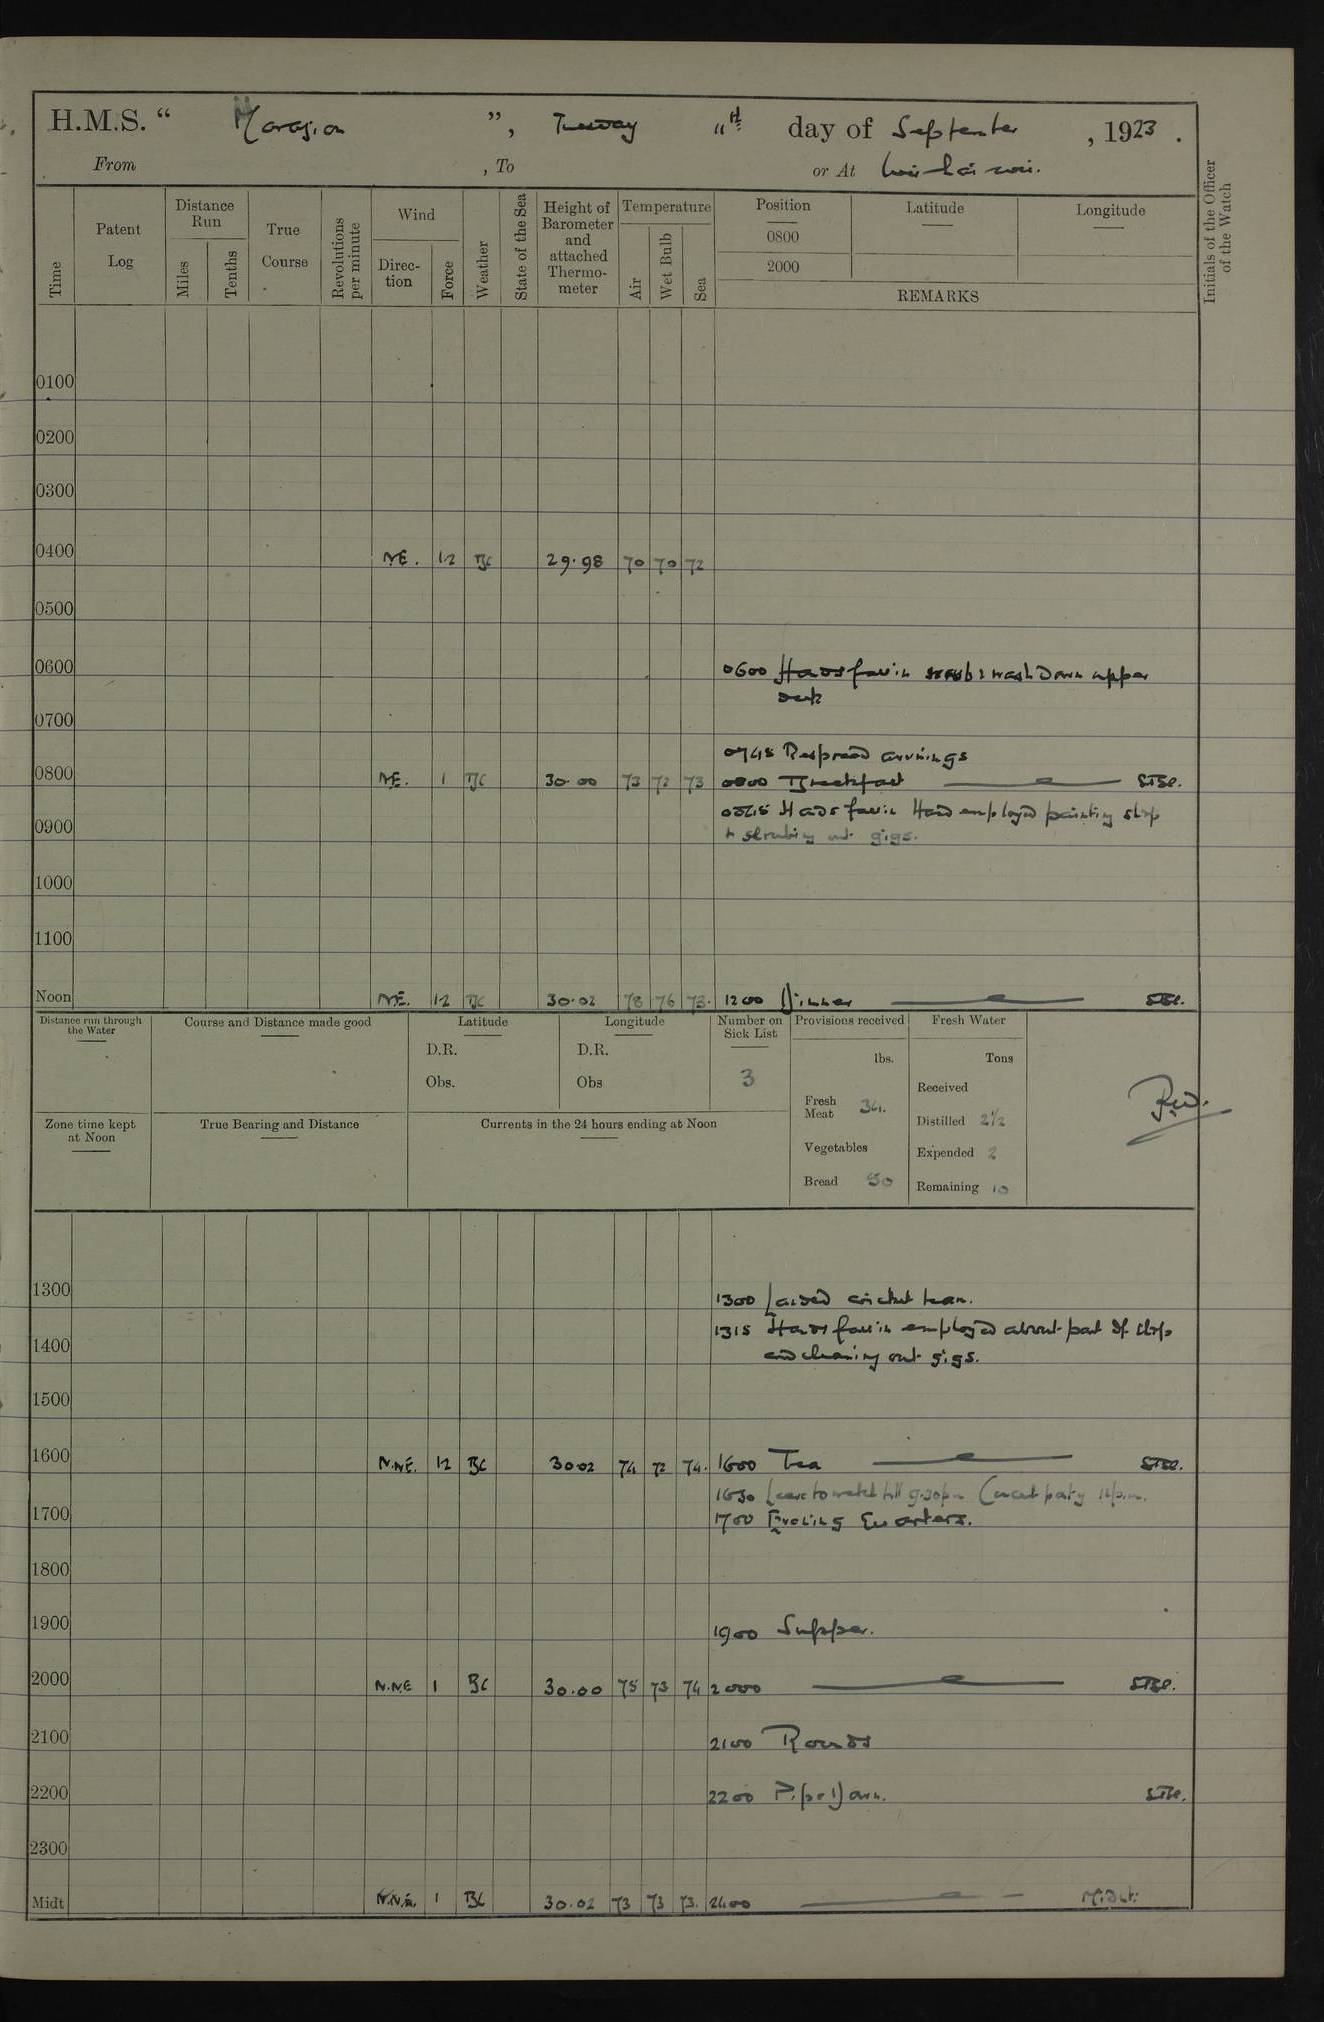 H.M.S. “ Marazion ”, Tuesday 11th day of September, 1923.
From , To or At Wei-hai-wei.
Time
Patent Log
Distance Run
Miles
Tenths
True Course
Revolutions per minute
Wind
Direc- tion
Force
Weather
State of the Sea
Height of Barometer and attached Thermo- meter
Temperature
Air
Wet Bulb
Sea
Position
Latitude
Longitude
0800
2000
REMARKS
Initials of the Officer of the Watch
0100
0200
0300
0400 NE. 1-2 BC 29.98 70 70 72
0500
0600 0600 Hands fall in scrub & wash down upper
deck
0700
0745 Respread awnings
0800 NE. 1 BC 30.00 73 72 73 0800 Breakfast
0845 Hands fall in Hand employed painting ship
0900 & scrubbing out gigs.
1000
1100
Noon NE. 1-2 BC 30.02 78 76 73. 1200 Dinner
Distance run through the Water
Course and Distance made good
Latitude
D.R.
Obs.
Longitude
D.R.
Obs
Number on Sick List
3
Provisions received
lbs.
Fresh Meat 34.
Vegetables
Bread 50
Fresh Water
Tons
Received
Distilled 2½
Expended 2
Remaining 10
Zone time kept at Noon
True Bearing and Distance
Currents in the 24 hours ending at Noon
1300 1300 Landed cricket team.
1315 Hands fall in employed about part of ship
1400 and cleaning out gigs.
1500
1600 N.NE. 1-2 BC 30.02 74 72 74. 1600 Tea
1630 Leave to watch till 9.30pm
1700 1700 Evening Quarters.
1800
1900 1900 Supper.
2000 N.NE 1 BC 30.00 75 73 74 2000
2100 2100 Rounds
2200 2200 Pipe Down.
2300
Midt N.N.E. 1 BC 30.02 73 73 73. 2400 Midt: